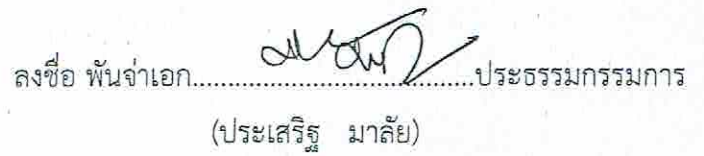 ลงชื่อ พันจ่าเอก........................................ประธรรมกรรมการ
(ประเสริฐ มาลัย)